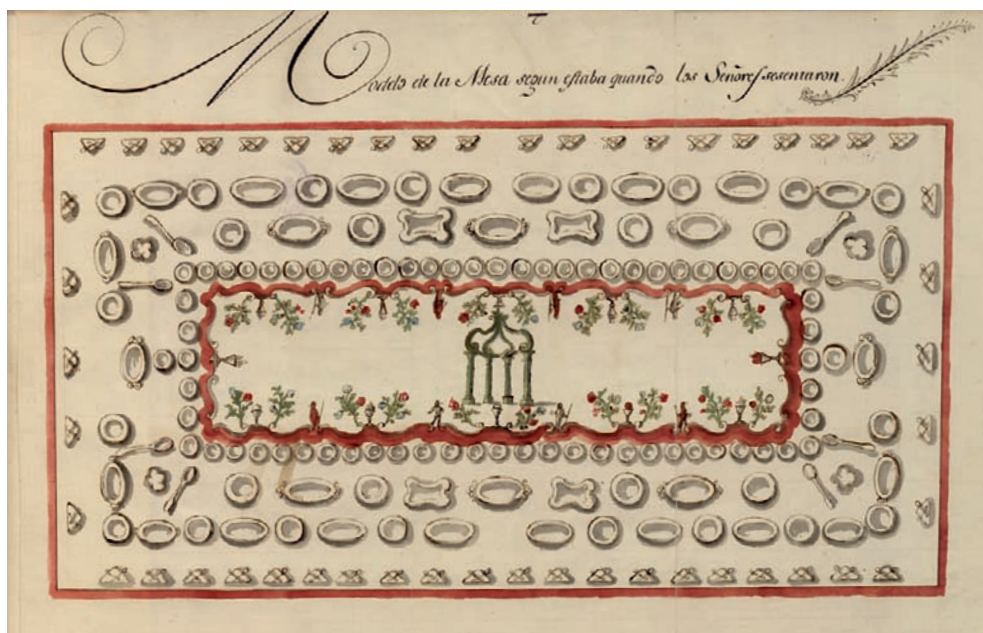 Modelo de la Mesa segun estaba quando los Señores sesentaron.